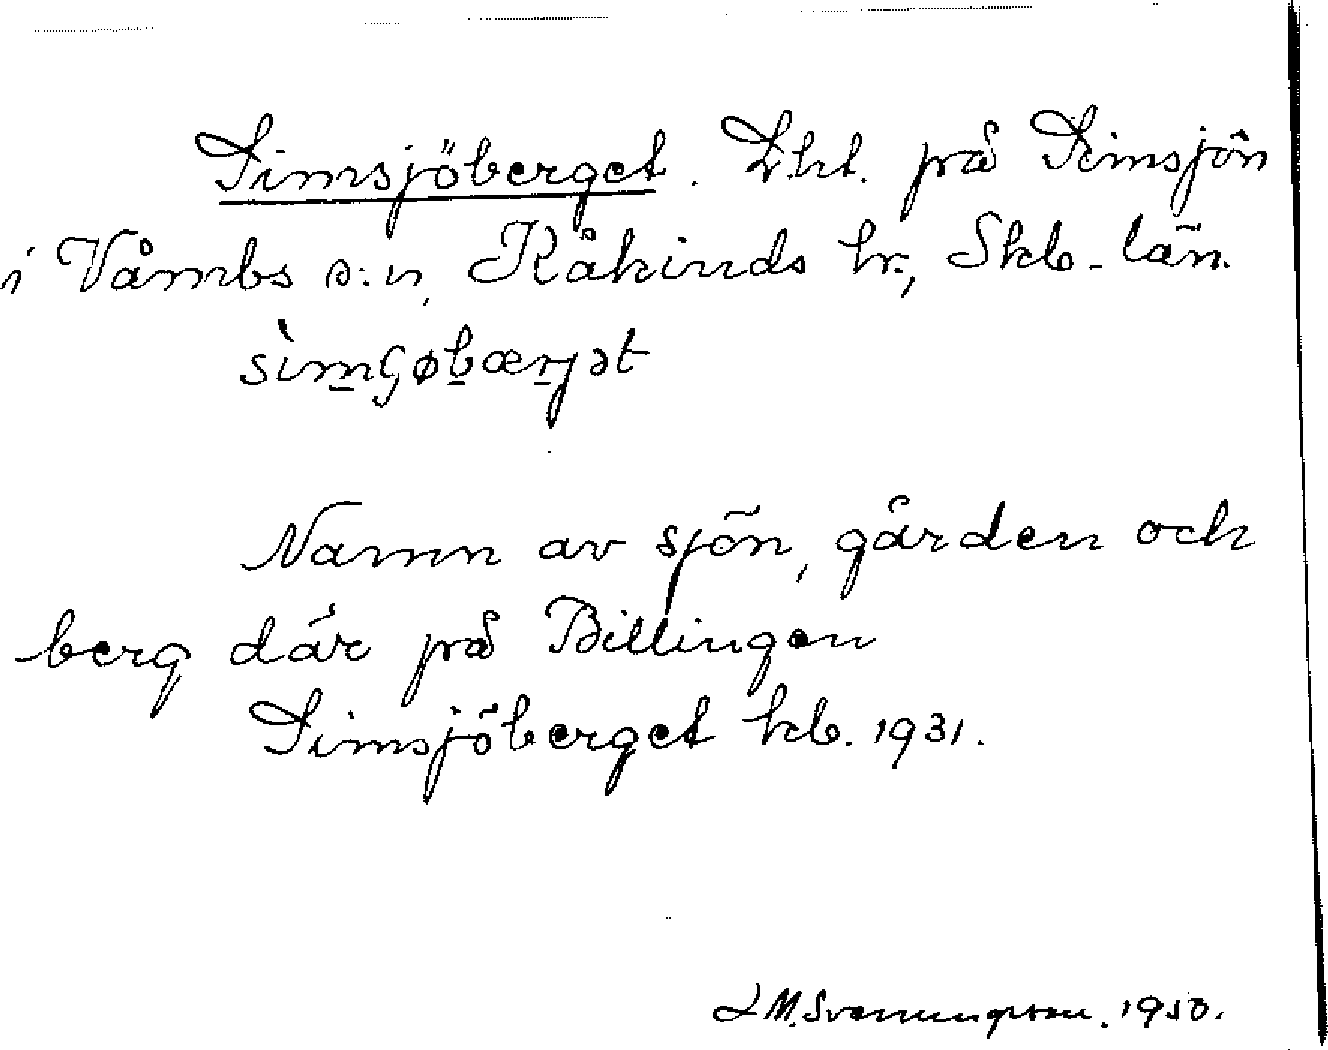 Simsjöberget. Lht. på Simsjön
i Våmbs s:n, Kåkinds hr, Skb. län.
Namn av sjön, gården och
berg där på Billingen
Simsjöberget kb. 1931.
L M. Svenungsson. 1950.